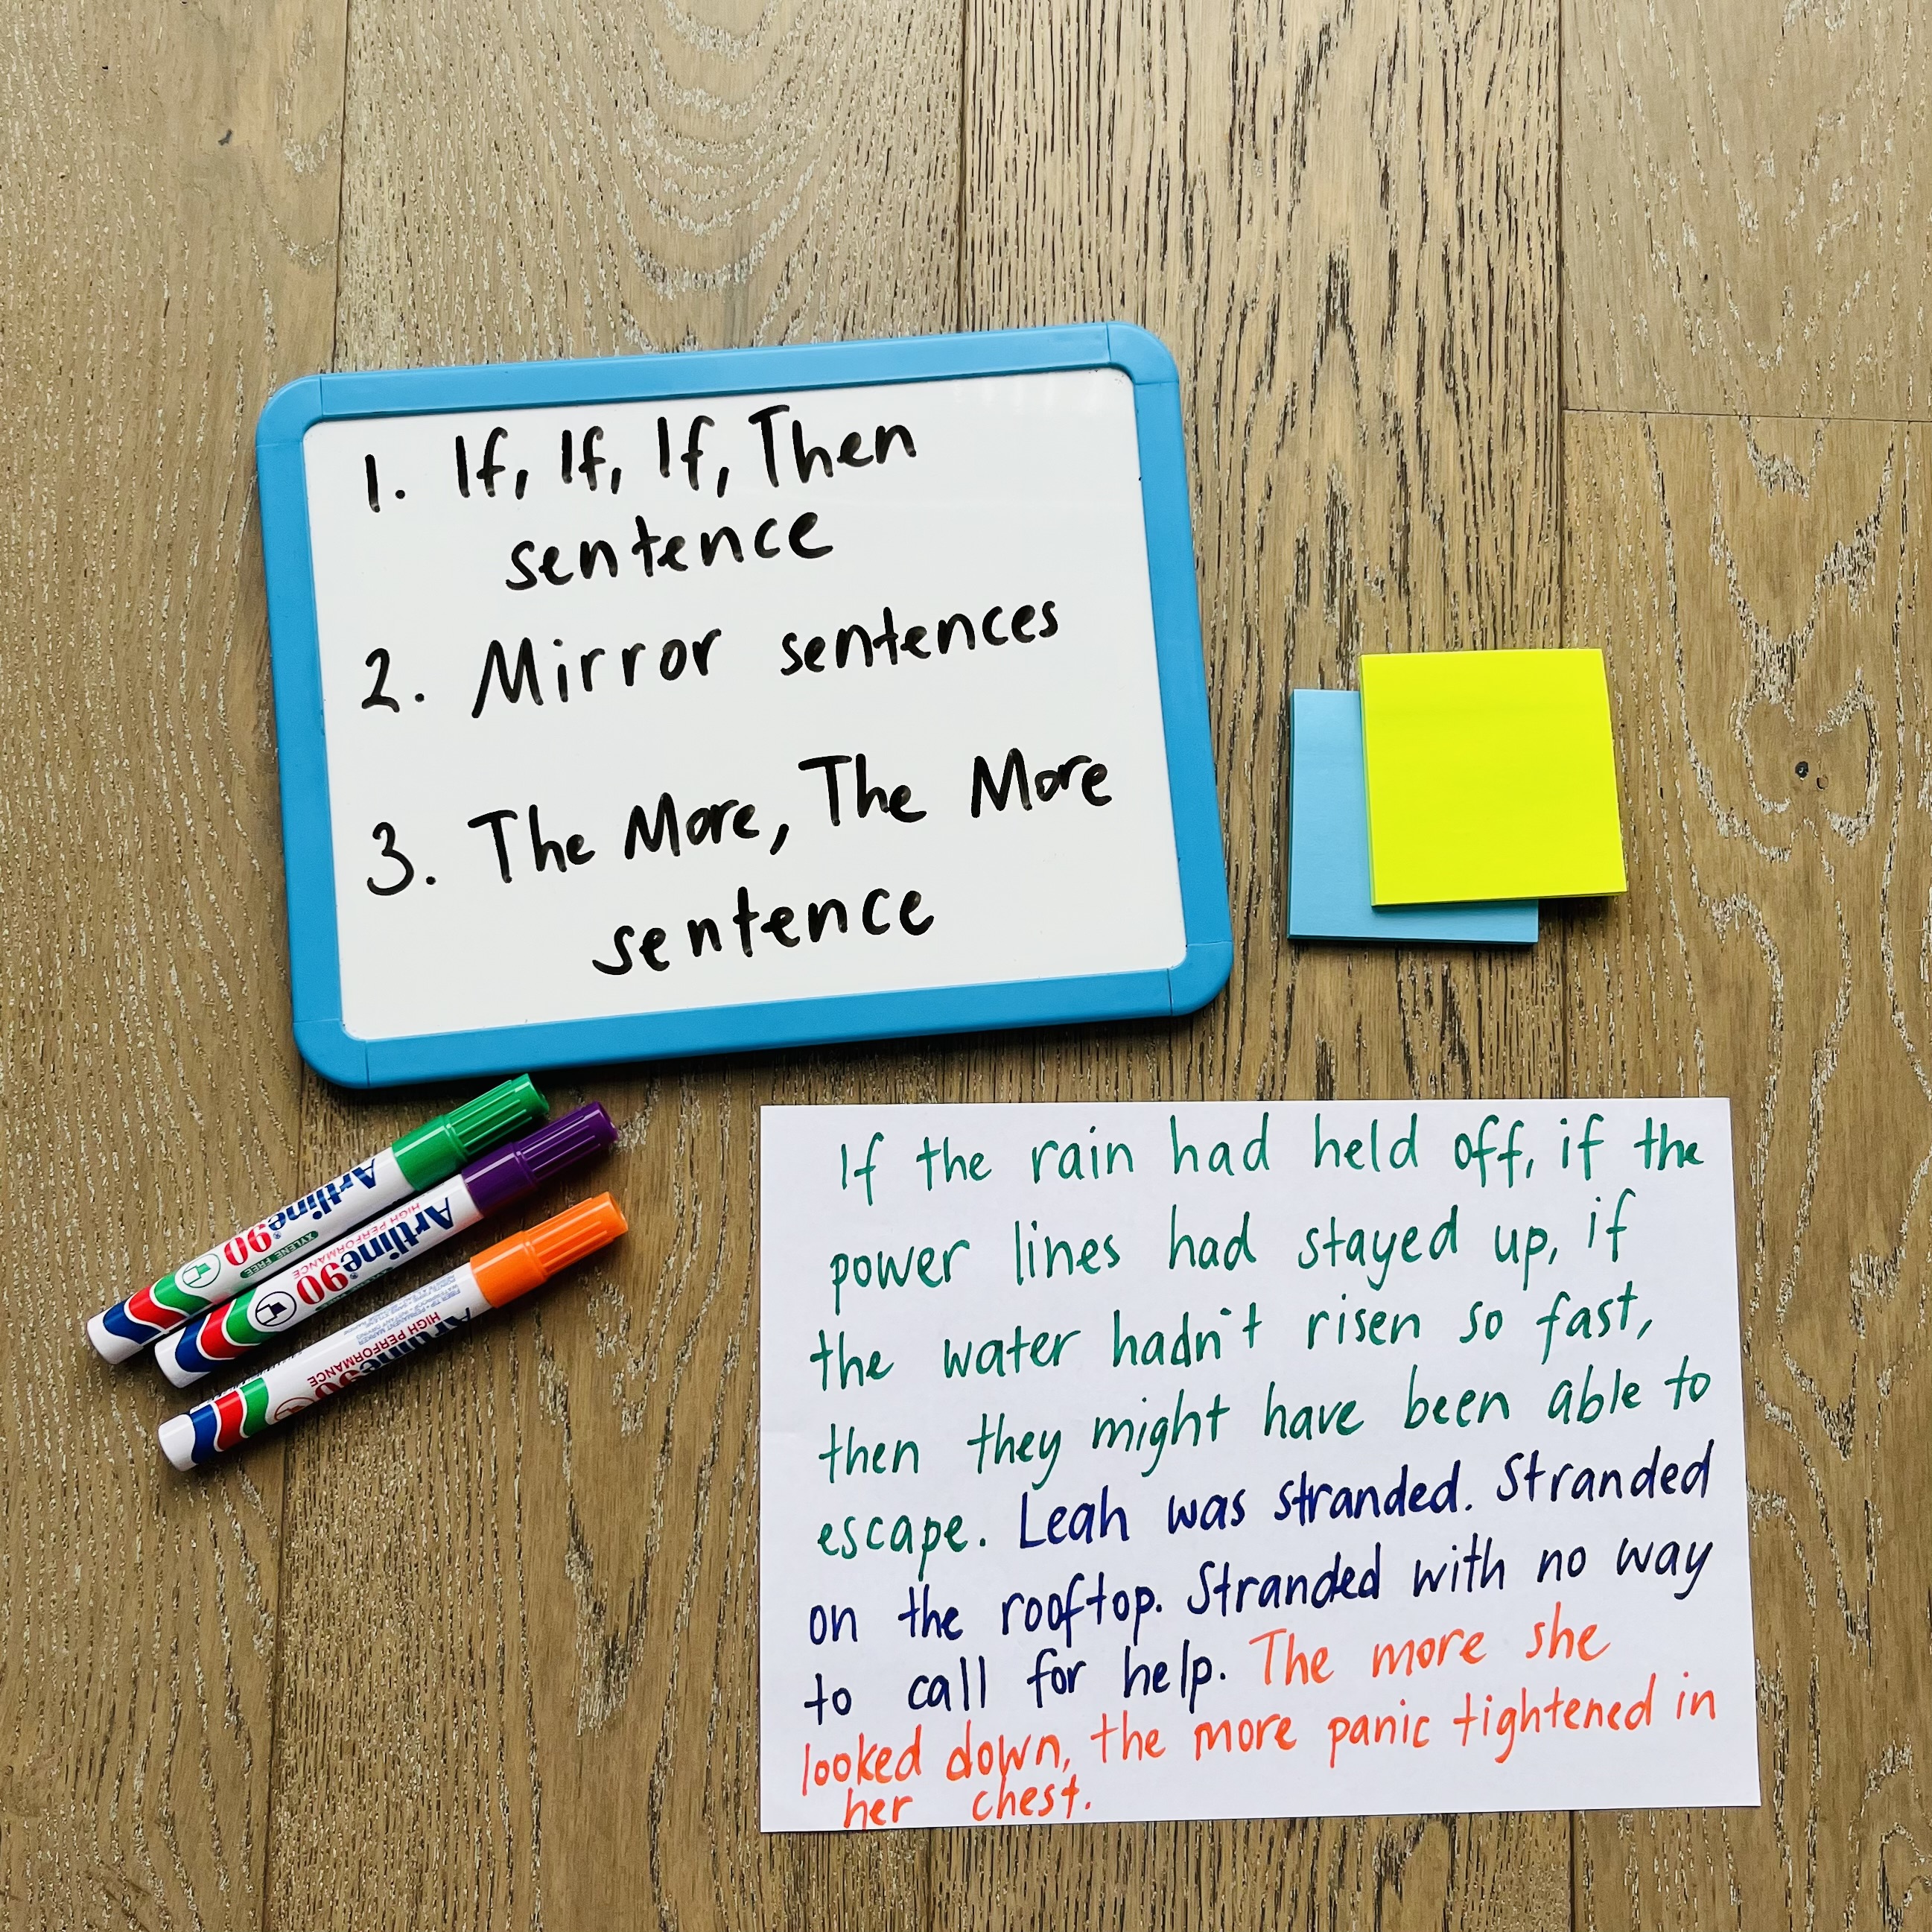 1. If, If, If, Then
sentence
2. Mirror sentences
3. The More, The More
sentence
Artline 90
XYLENE FREE
Artline 90
HIGH PERFORMANCE
HIGH PERFORMANCE
If the rain had held off, if the
power lines had stayed up, if
the water hadn't risen so fast,
then they might have been able to
escape. Leah was stranded. Stranded
on the rooftop. Stranded with no way
to call for help. The more she
looked down, the more panic tightened in
her chest.